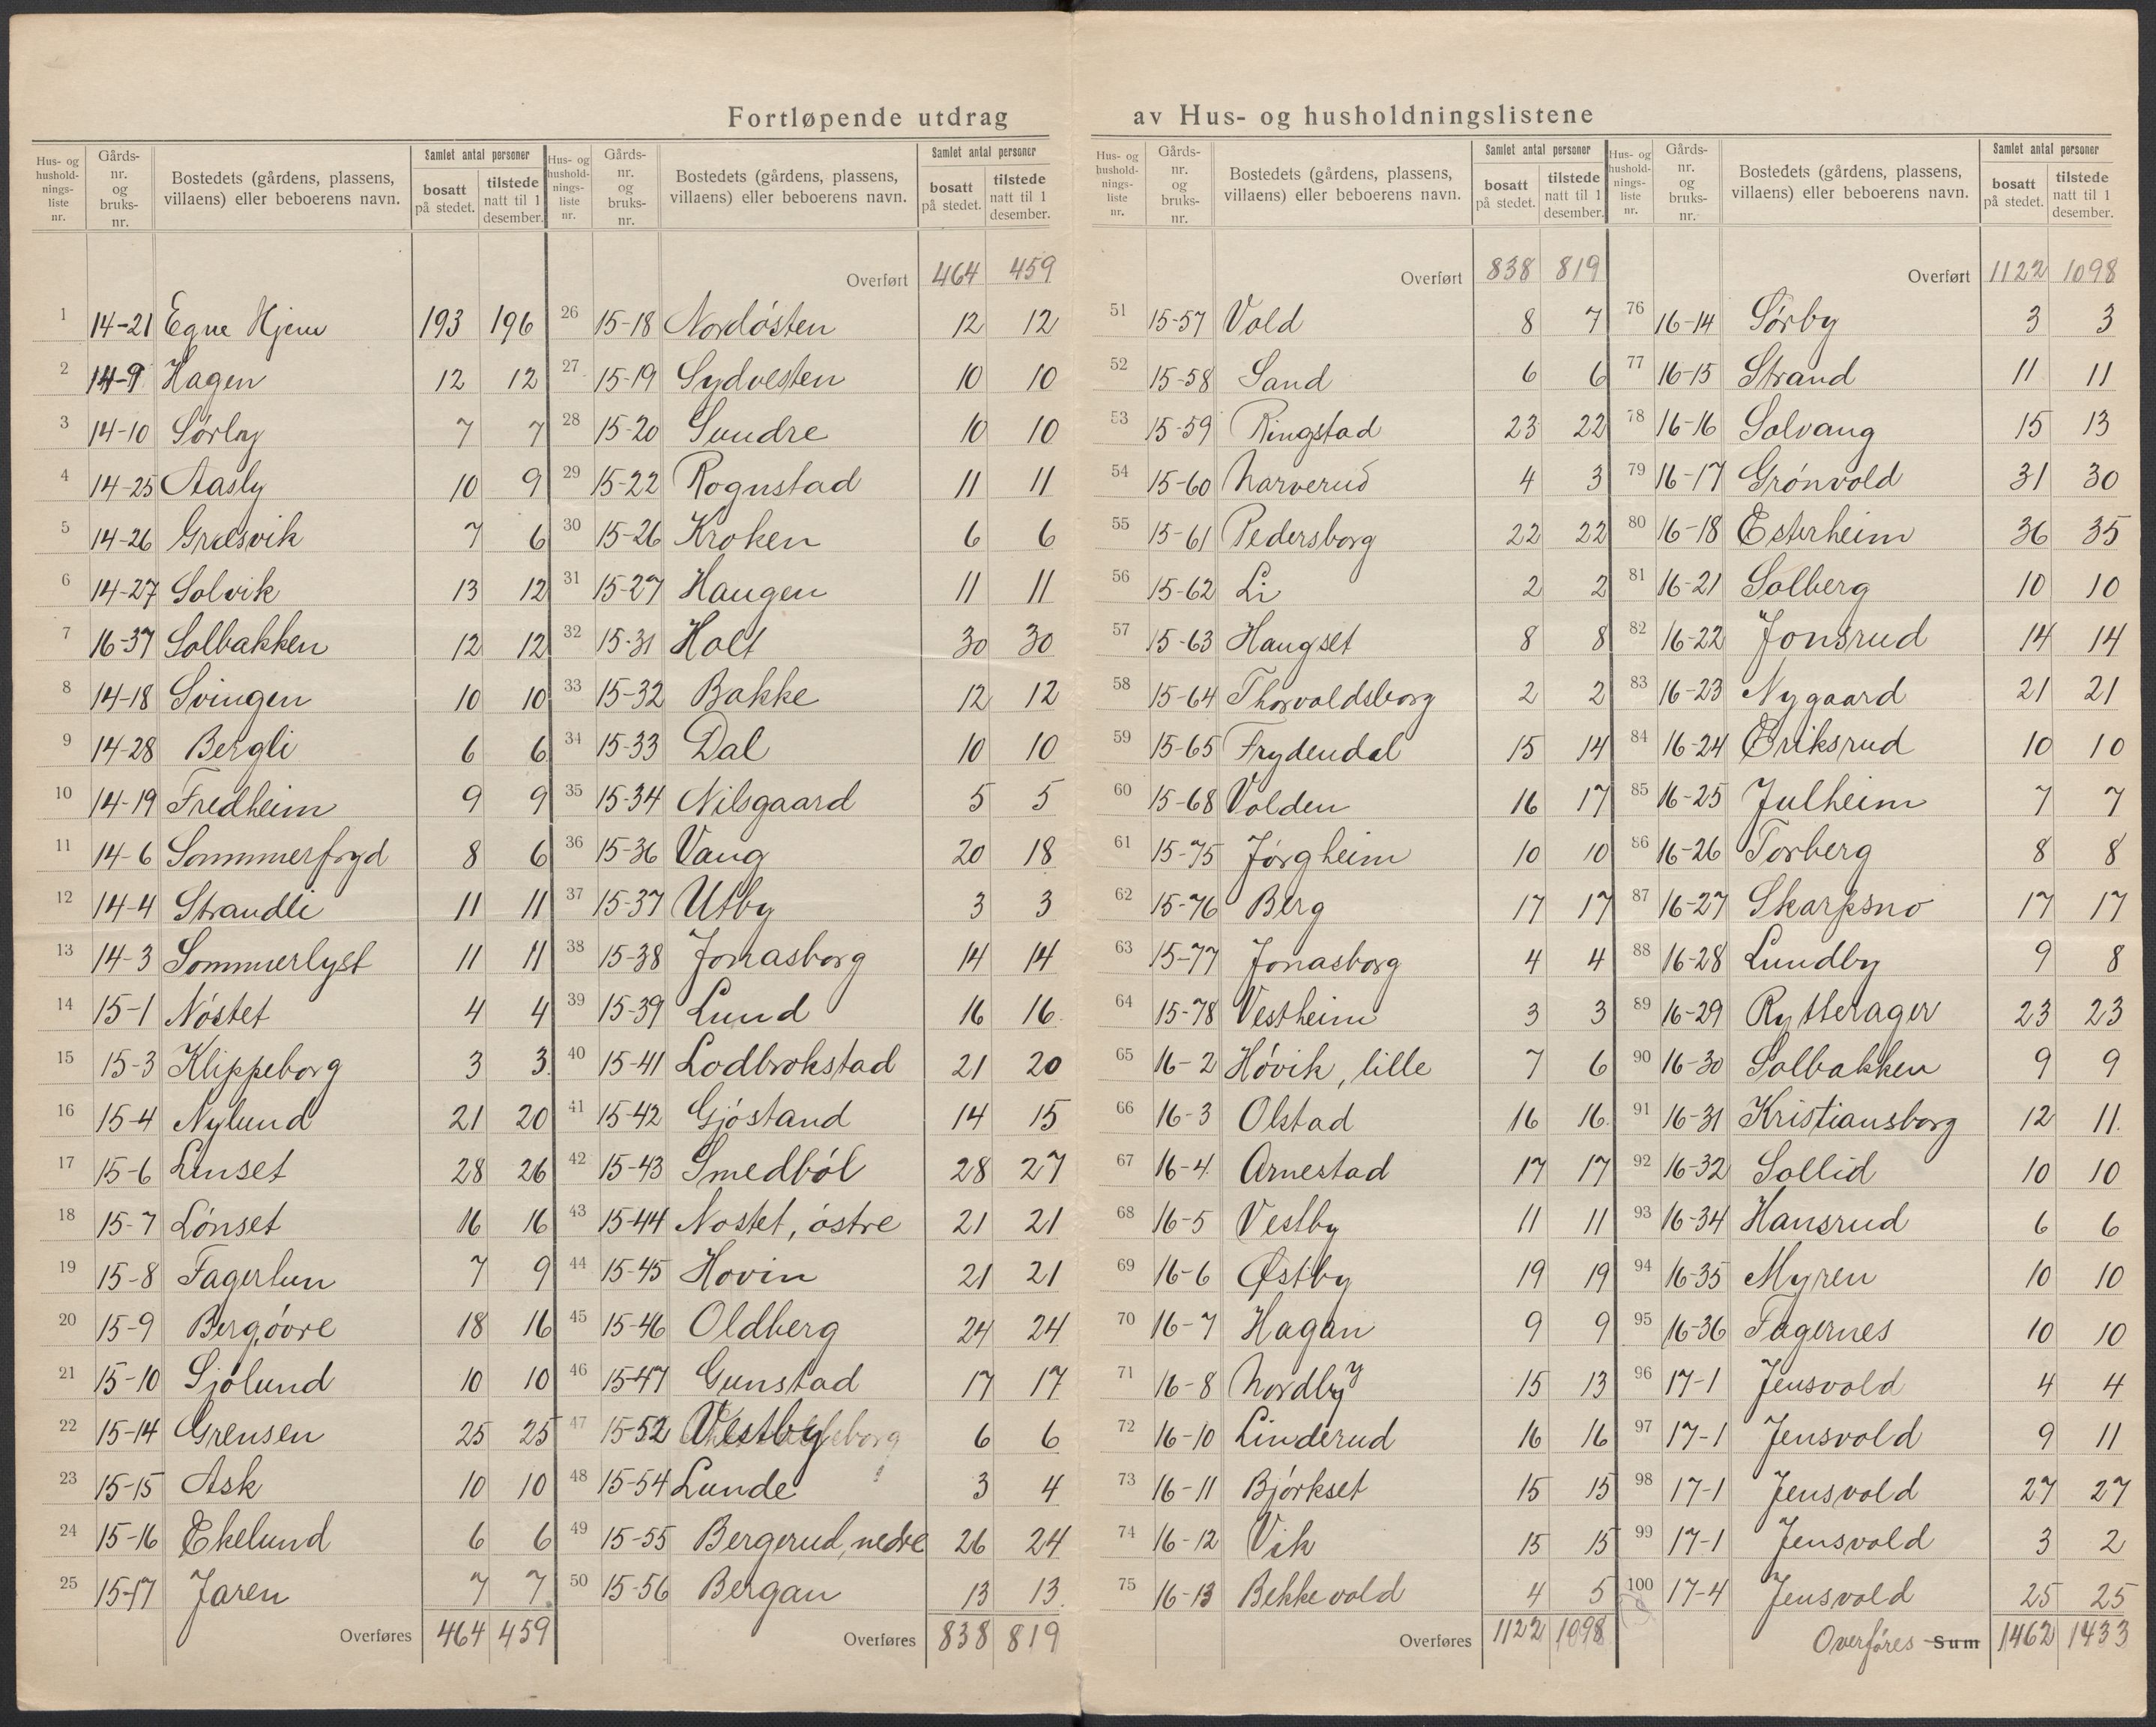 Fortløpende utdrag av Hus- og husholdningslistene
Hus- og hushold-nings-liste nr. Gårds-nr. og bruks-nr. Bostedets (gårdens, plassens, villaens) eller beboerens navn. Samlet antal personer bosatt på stedet. tilstede natt til 1 desember.
1 14-21 Egne Hjem 193 196
2 14-9 Hagen 12 12
3 14-10 Sørby 7 7
4 14-25 Aasly 10 9
5 14-26 Græsvik 7 6
6 14-27 Solvik 13 12
7 16-37 Solbakken 12 12
8 14-18 Svingen 10 10
9 14-28 Bergli 6 6
10 14-19 Fredheim 9 9
11 14-6 Sommmerfryd 8 6
12 14-4 Strandli 11 11
13 14-3 Sommerlyst 11 11
14 15-1 Nøstet 4 4
15 15-3 Klippeborg 3 3
16 15-4 Nylund 21 20
17 15-6 Linset 28 26
18 15-7 Lønset 16 16
19 15-8 Fagerlun 7 9
20 15-9 Berg, øvre 18 16
21 15-10 Sjølund 10 10
22 15-14 Grensen 25 25
23 15-15 Ask 10 10
24 15-16 Ekelund 6 6
25 15-17 Jaren 7 7
Overføres 464 459
Hus- og hushold-nings-liste nr. Gårds-nr. og bruks-nr. Bostedets (gårdens, plassens, villaens) eller beboerens navn. Samlet antal personer bosatt på stedet. tilstede natt til 1 desember.
Overført 464 459
26 15-18 Nordøsten 12 12
27 15-19 Sydvesten 10 10
28 15-20 Sundre 10 10
29 15-22 Rognstad 11 11
30 15-26 Kroken 6 6
31 15-27 Haugen 11 11
32 15-31 Holt 30 30
33 15-32 Bakke 12 12
34 15-33 Dal 10 10
35 15-34 Nilsgaard 5 5
36 15-36 Vang 20 18
37 15-37 Utby 3 3
38 15-38 Jonasborg 14 14
39 15-39 Lund 16 16
40 15-41 Lodbrokstad 21 20
41 15-42 Gjøstand 14 15
42 15-43 Smedbøl 28 27
43 15-44 Nøstet, østre 21 21
44 15-45 Hovin 21 21
45 15-46 Oldberg 24 24
46 15-47 Gunstad 17 17
47 15-52 Vestby 6 6
48 15-54 Lunde 3 4
49 15-55 Bergerud, nedre 26 24
50 15-56 Bergan 13 13
Overføres 838 819
Hus- og hushold-nings-liste nr. Gårds-nr. og bruks-nr. Bostedets (gårdens, plassens, villaens) eller beboerens navn. Samlet antal personer bosatt på stedet. tilstede natt til 1 desember.
Overført 838 819
51 15-57 Vold 8 7
52 15-58 Sand 6 6
53 15-59 Ringstad 23 22
54 15-60 Narverud 4 3
55 15-61 Pedersborg 22 22
56 15-62 Li 2 2
57 15-63 Haugset 8 8
58 15-64 Thorvaldsborg 2 2
59 15-65 Frydendal 15 14
60 15-68 Volden 16 17
61 15-75 Jørgheim 10 10
62 15-76 Berg 17 17
63 15-77 Jonasborg 4 4
64 15-78 Vestheim 3 3
65 16-2 Høvik, lille 7 6
66 16-3 Olstad 16 16
67 16-4 Arnestad 17 17
68 16-5 Vestby 11 11
69 16-6 Østby 19 19
70 16-7 Hagan 9 9
71 16-8 Nordby 15 13
72 16-10 Linderud 16 16
73 16-11 Bjørkset 15 15
74 16-12 Vik 15 15
75 16-13 Bekkevold 4 5
Overføres 1122 1098
Hus- og hushold-nings-liste nr. Gårds-nr. og bruks-nr. Bostedets (gårdens, plassens, villaens) eller beboerens navn. Samlet antal personer bosatt på stedet. tilstede natt til 1 desember.
Overført 1122 1098
76 16-14 Sørby 3 3
77 16-15 Strand 11 11
78 16-16 Solvang 15 13
79 16-17 Grønvold 31 30
80 16-18 Esterheim 36 35
81 16-21 Solberg 10 10
82 16-22 Jonsrud 14 14
83 16-23 Nygaard 21 21
84 16-24 Eriksrud 10 10
85 16-25 Julheim 7 7
86 16-26 Torberg 8 8
87 16-27 Skarpsno 17 17
88 16-28 Lundby 9 8
89 16-29 Rytterager 23 23
90 16-30 Solbakken 9 9
91 16-31 Kristiansborg 12 11
92 16-32 Sollid 10 10
93 16-34 Hansrud 6 6
94 16-35 Myren 10 10
95 16-36 Fagernes 10 10
96 17-1 Jensvold 4 4
97 17-1 Jensvold 9 11
98 17-1 Jensvold 27 27
99 17-1 Jensvold 3 2
100 17-4 Jensvold 25 25
Overføres Sum 1462 1433